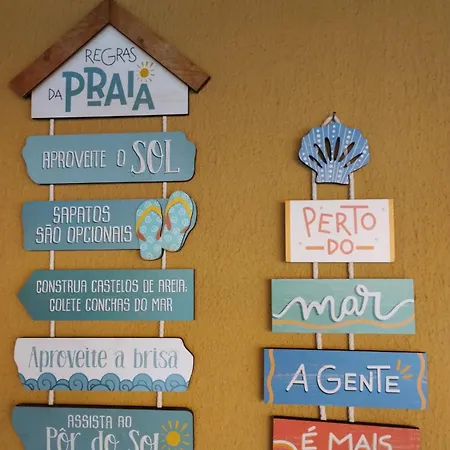 REGRAS
DA PRAIA
APROVEITE O SOL
SAPATOS
SÃO OPCIONAIS
CONSTRUA CASTELOS DE AREIA;
COLETE CONCHAS DO MAR
Aproveite a brisa
ASSISTA AO
Pôr do Sol
PERTO
DO
mar
A GENTE
É MAIS